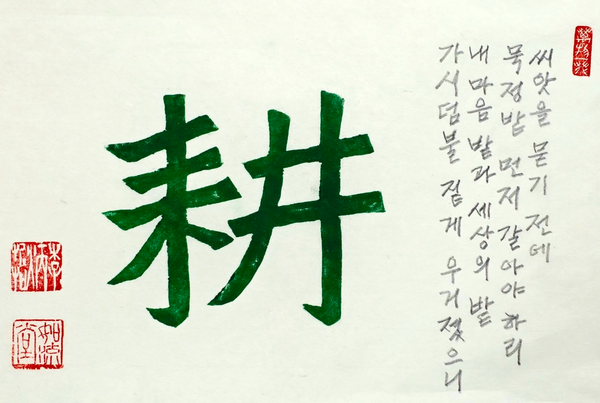 씨앗을 묻기 전에
묵정밭 먼저 갈아야 하리
내 마음 밭과 세상의 밭
가시덤불 짙게 우거졌으니
耕